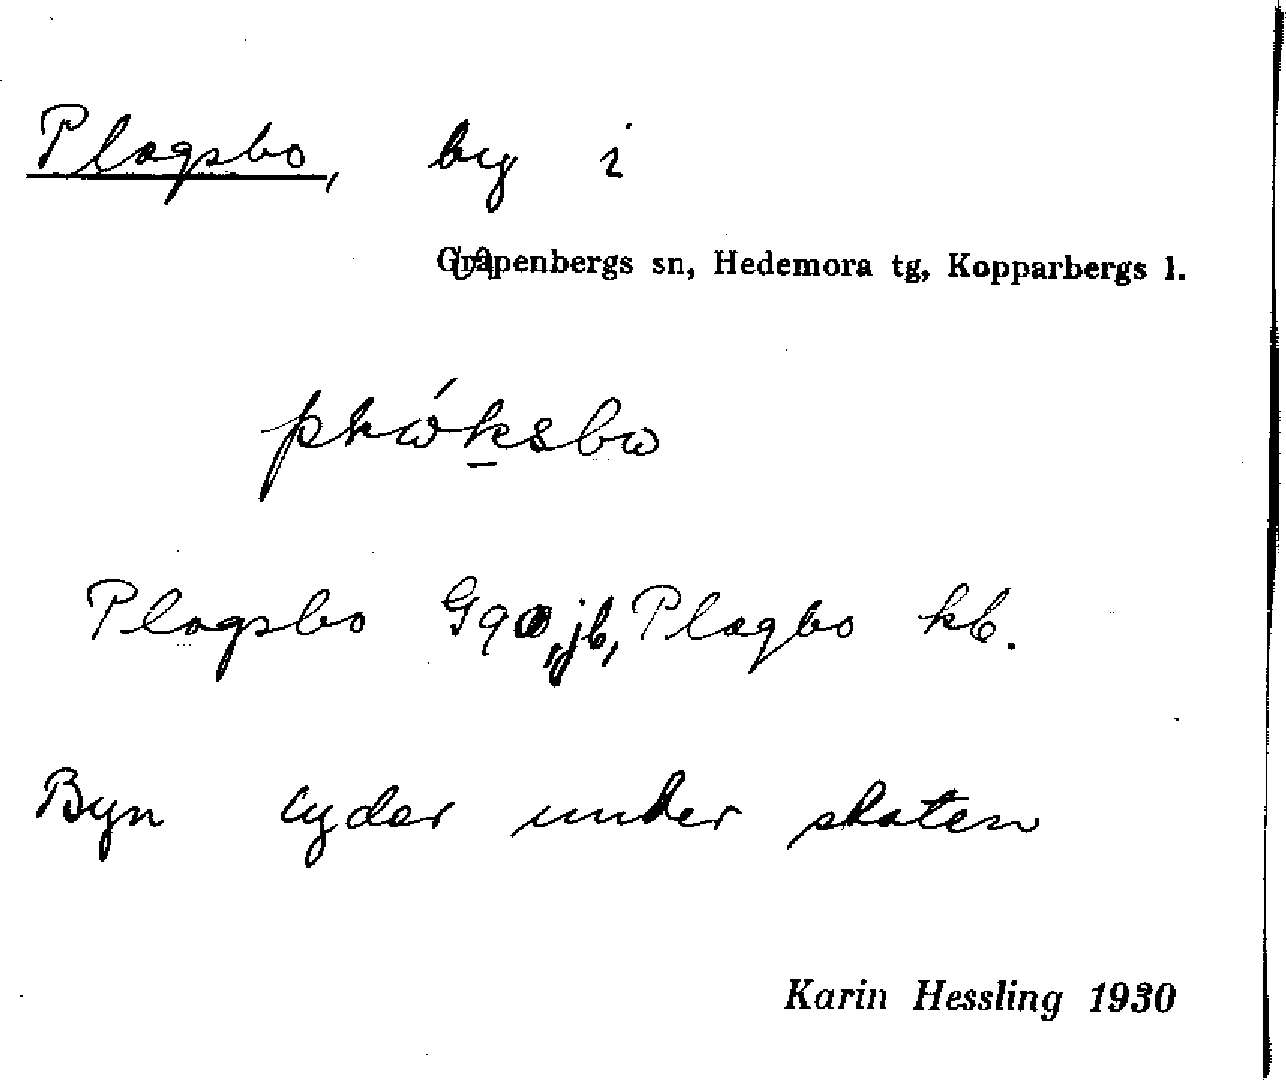 Plogsbo, by i
Grapenbergs sn, Hedemora tg, Kopparbergs l.
Plogsbo jb, Plogbo kb.
Byn lyder under staten
Karin Hessling 1930